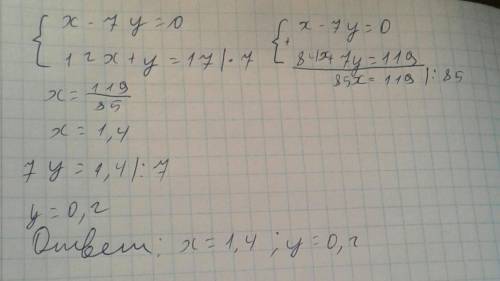 { x - 7y = 0
{ 12x + y = 17 | · 7
{ x - 7y = 0
+ 84x + 7y = 119
85x = 119 | : 85
x = 119/85
x = 1,4
7y = 1,4 | : 7
y = 0,2
Ответ: x = 1,4 ; y = 0,2